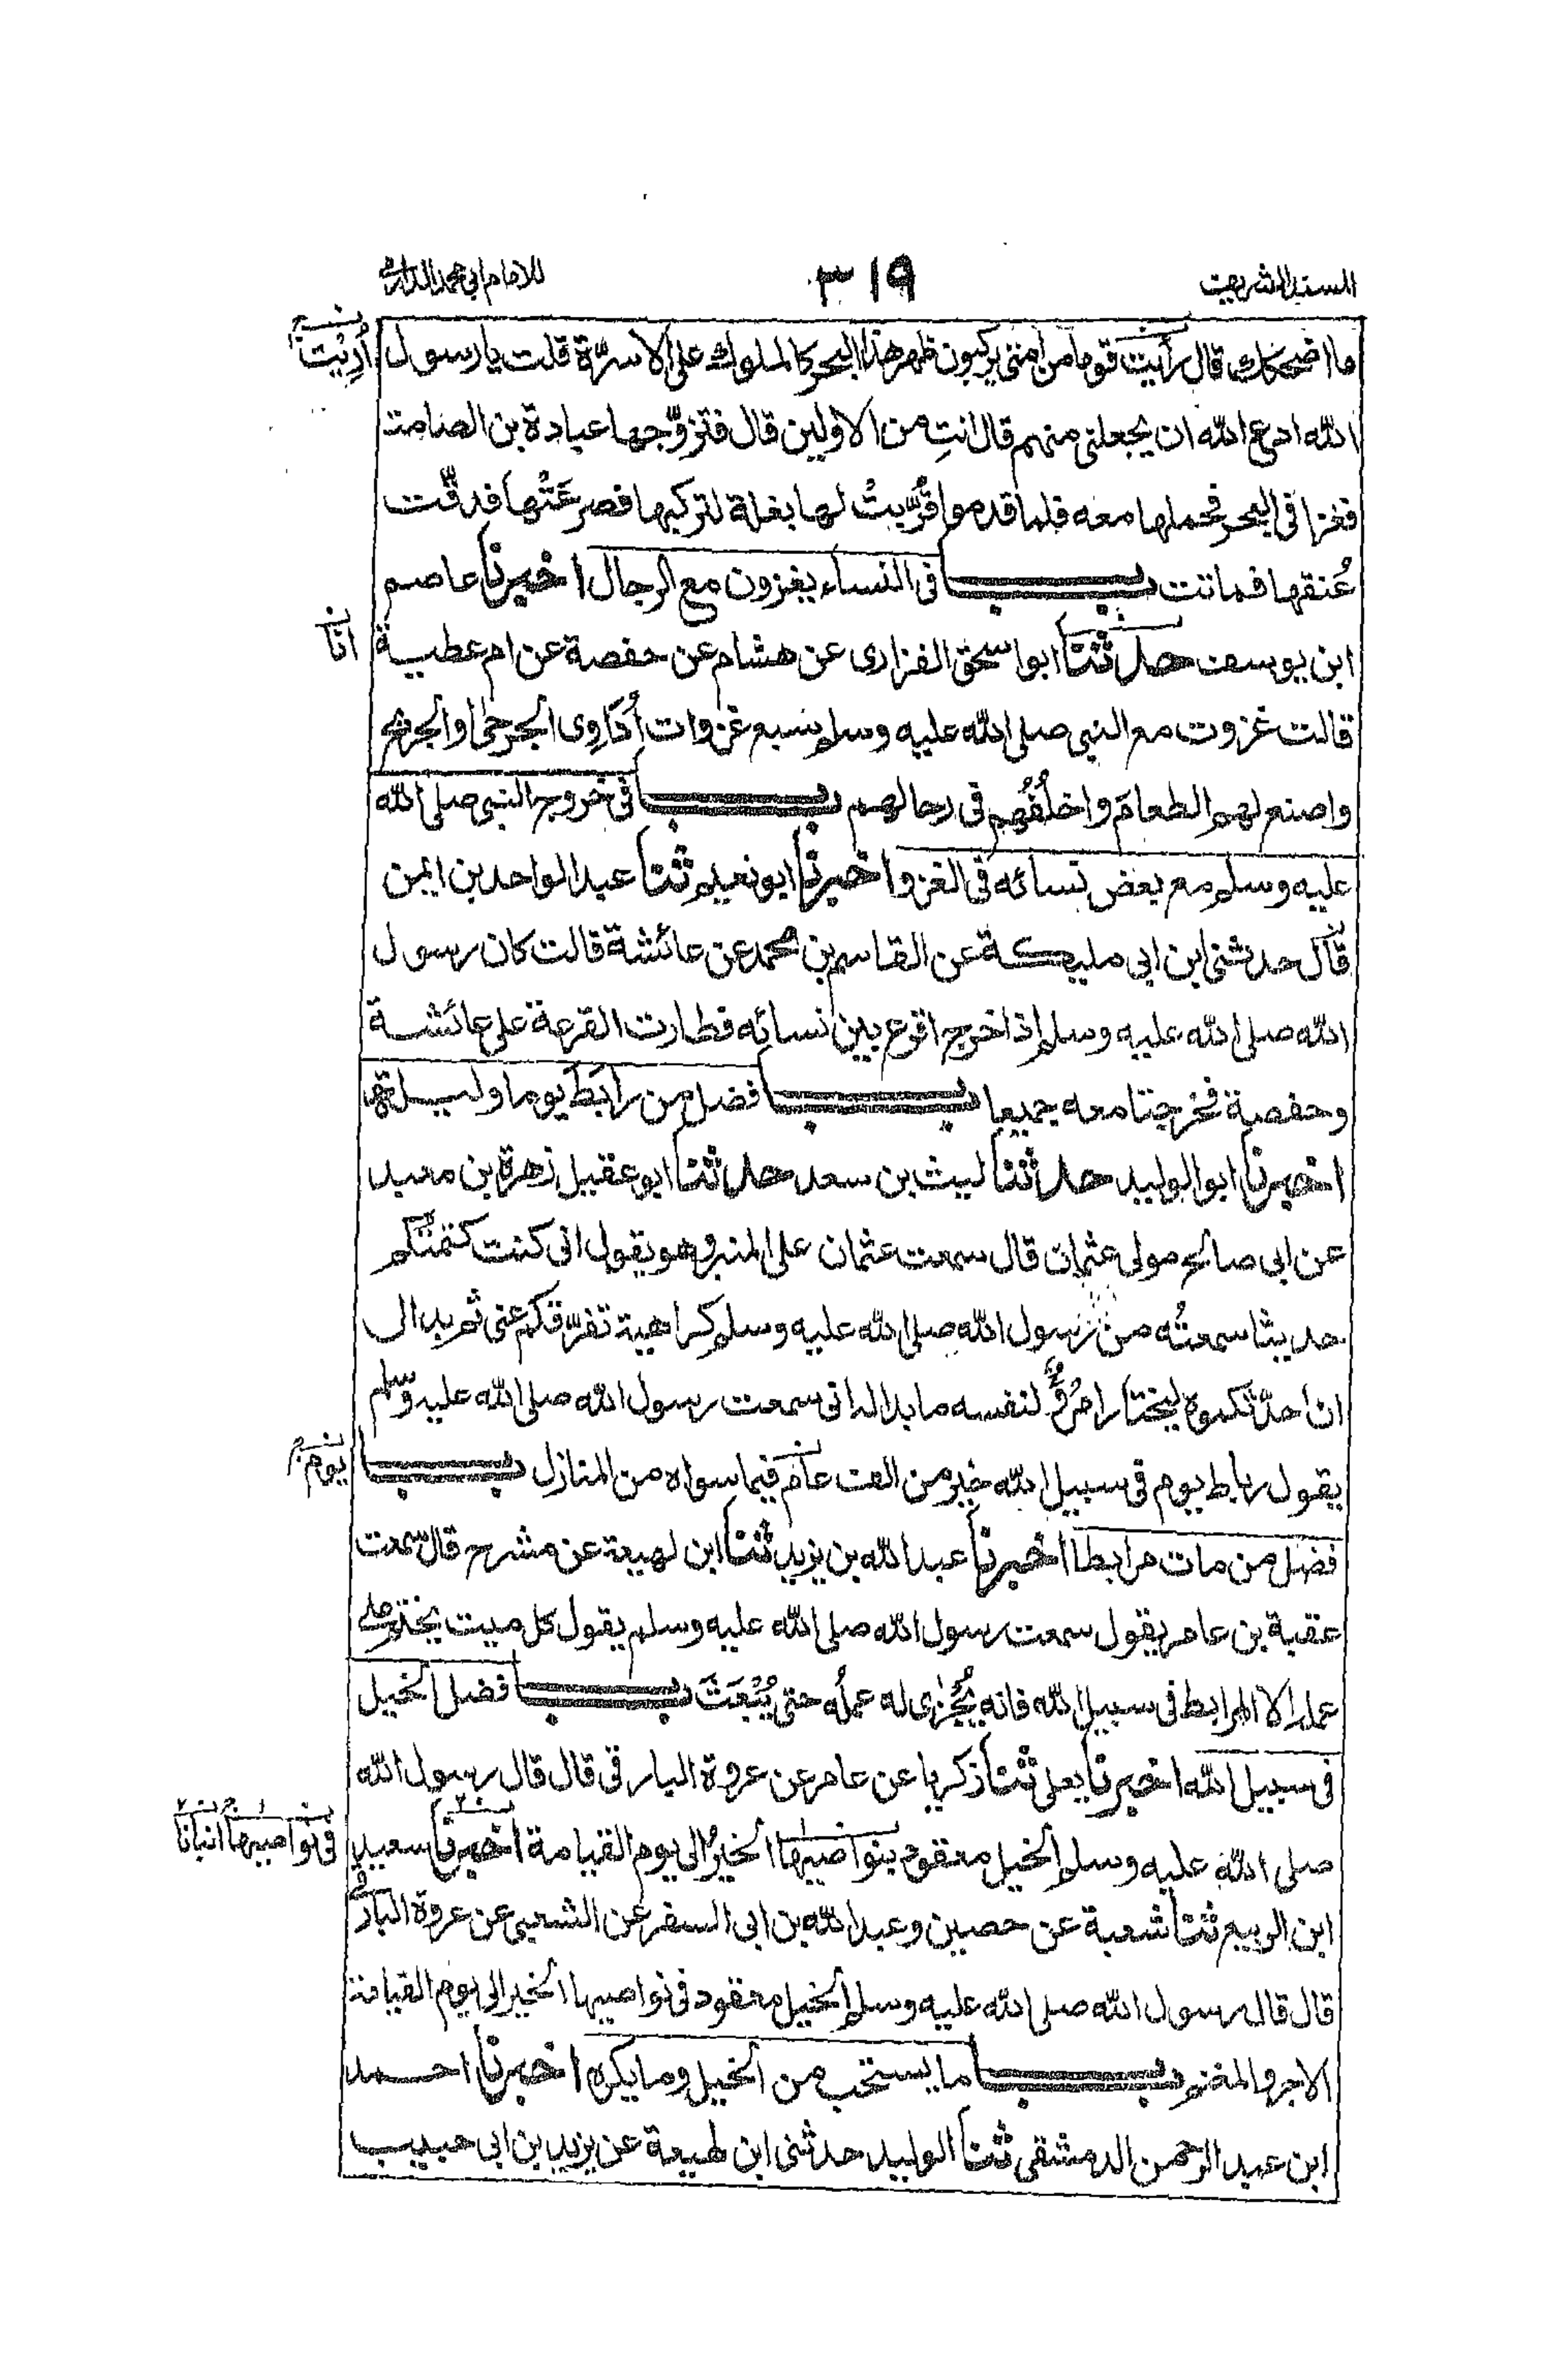 المسند الشريف ٣١٩ للامام ابى محمد الدارمى
ما اضحكك قال رأيت قوما من امتى يركبون ظهر هذا البحر كالملوك على الاسرّة قلت يا رسول
أُرِيْتُ
الله ادع الله ان يجعلنى منهم قال انتِ من الاولين قال فتزوّجها عبادة بن الصامت
فغزا فى البحر فحملها معه فلما قدموا قُرّبتْ لها بغلة لتركبها فصرعَتْها فدقّت
عُنقها فماتت باب فى النساء يغزون مع الرجال اخبرنا عاصم
ابن يوسف حدثنا ابو اسحق الفزارى عن هشام عن حفصة عن ام عطية
انا
قالت غزوت مع النبى صلى الله عليه وسلم سبع غزوات أُدَاوِى الجرحى او الجريح
واصنع لهم الطعامَ واخلُفُهم فى رحالهم باب فى خروج النبى صلى الله
عليه وسلم مع بعض نسائه فى الغزو اخبرنا ابو نعيم ثنا عبد الواحد بن ايمن
قال حدثنى ابن ابى مليكة عن القاسم بن محمد عن عائشة قالت كان رسول
الله صلى الله عليه وسلم اذا خرج اقرع بين نسائه فطارت القرعة على عائشة
وحفصة فخرجتا معه جميعا باب فضل من رابَطَ يوما وليلة
اخبرنا ابو الوليد حدثنا ليث بن سعد حدثنا ابو عقيل زهرة بن معبد
عن ابى صالح مولى عثمان قال سمعت عثمان على المنبر وهو يقول انى كنت كتمتُكم
حديثا سمعتُه من رسول الله صلى الله عليه وسلم كراهية تفرّقكم عنى ثم بدا لى
ان احدّثكموه ليختار امرُؤٌ لنفسه ما بدا له انى سمعت رسول الله صلى الله عليه وسلم
يقول رباط يوم فى سبيل الله خير من الف عام فيما سواه من المنازل باب
يوم
فضل من مات مرابطا اخبرنا عبد الله بن يزيد ثنا ابن لهيعة عن مشرح قال سمعت
عقبة بن عامر يقول سمعت رسول الله صلى الله عليه وسلم يقول كل ميت يختم على
عمله الا المرابط فى سبيل الله فانه يُجْزٰى له عملُه حتى يُبْعَثَ باب فضل الخيل
فى سبيل الله اخبرنا يعلى ثنا زكريا عن عامر عن عروة البارقى قال قال رسول الله
صلى الله عليه وسلم الخيل معقود بنواصيها الخيرُ الى يوم القيامة اخبرنا سعيد
فى نواصيها انبانا
ابن الربيع ثنا شعبة عن حصين وعبد الله بن ابى السفر عن الشعبى عن عروة البارقى
قال قال رسول الله صلى الله عليه وسلم الخيل معقود فى نواصيها الخير الى يوم القيامة
الاجر والمغنم باب ما يستحب من الخيل وما يكره اخبرنا احمد
ابن عبد الرحمن الدمشقى ثنا الوليد حدثنى ابن لهيعة عن يزيد بن ابى حبيب